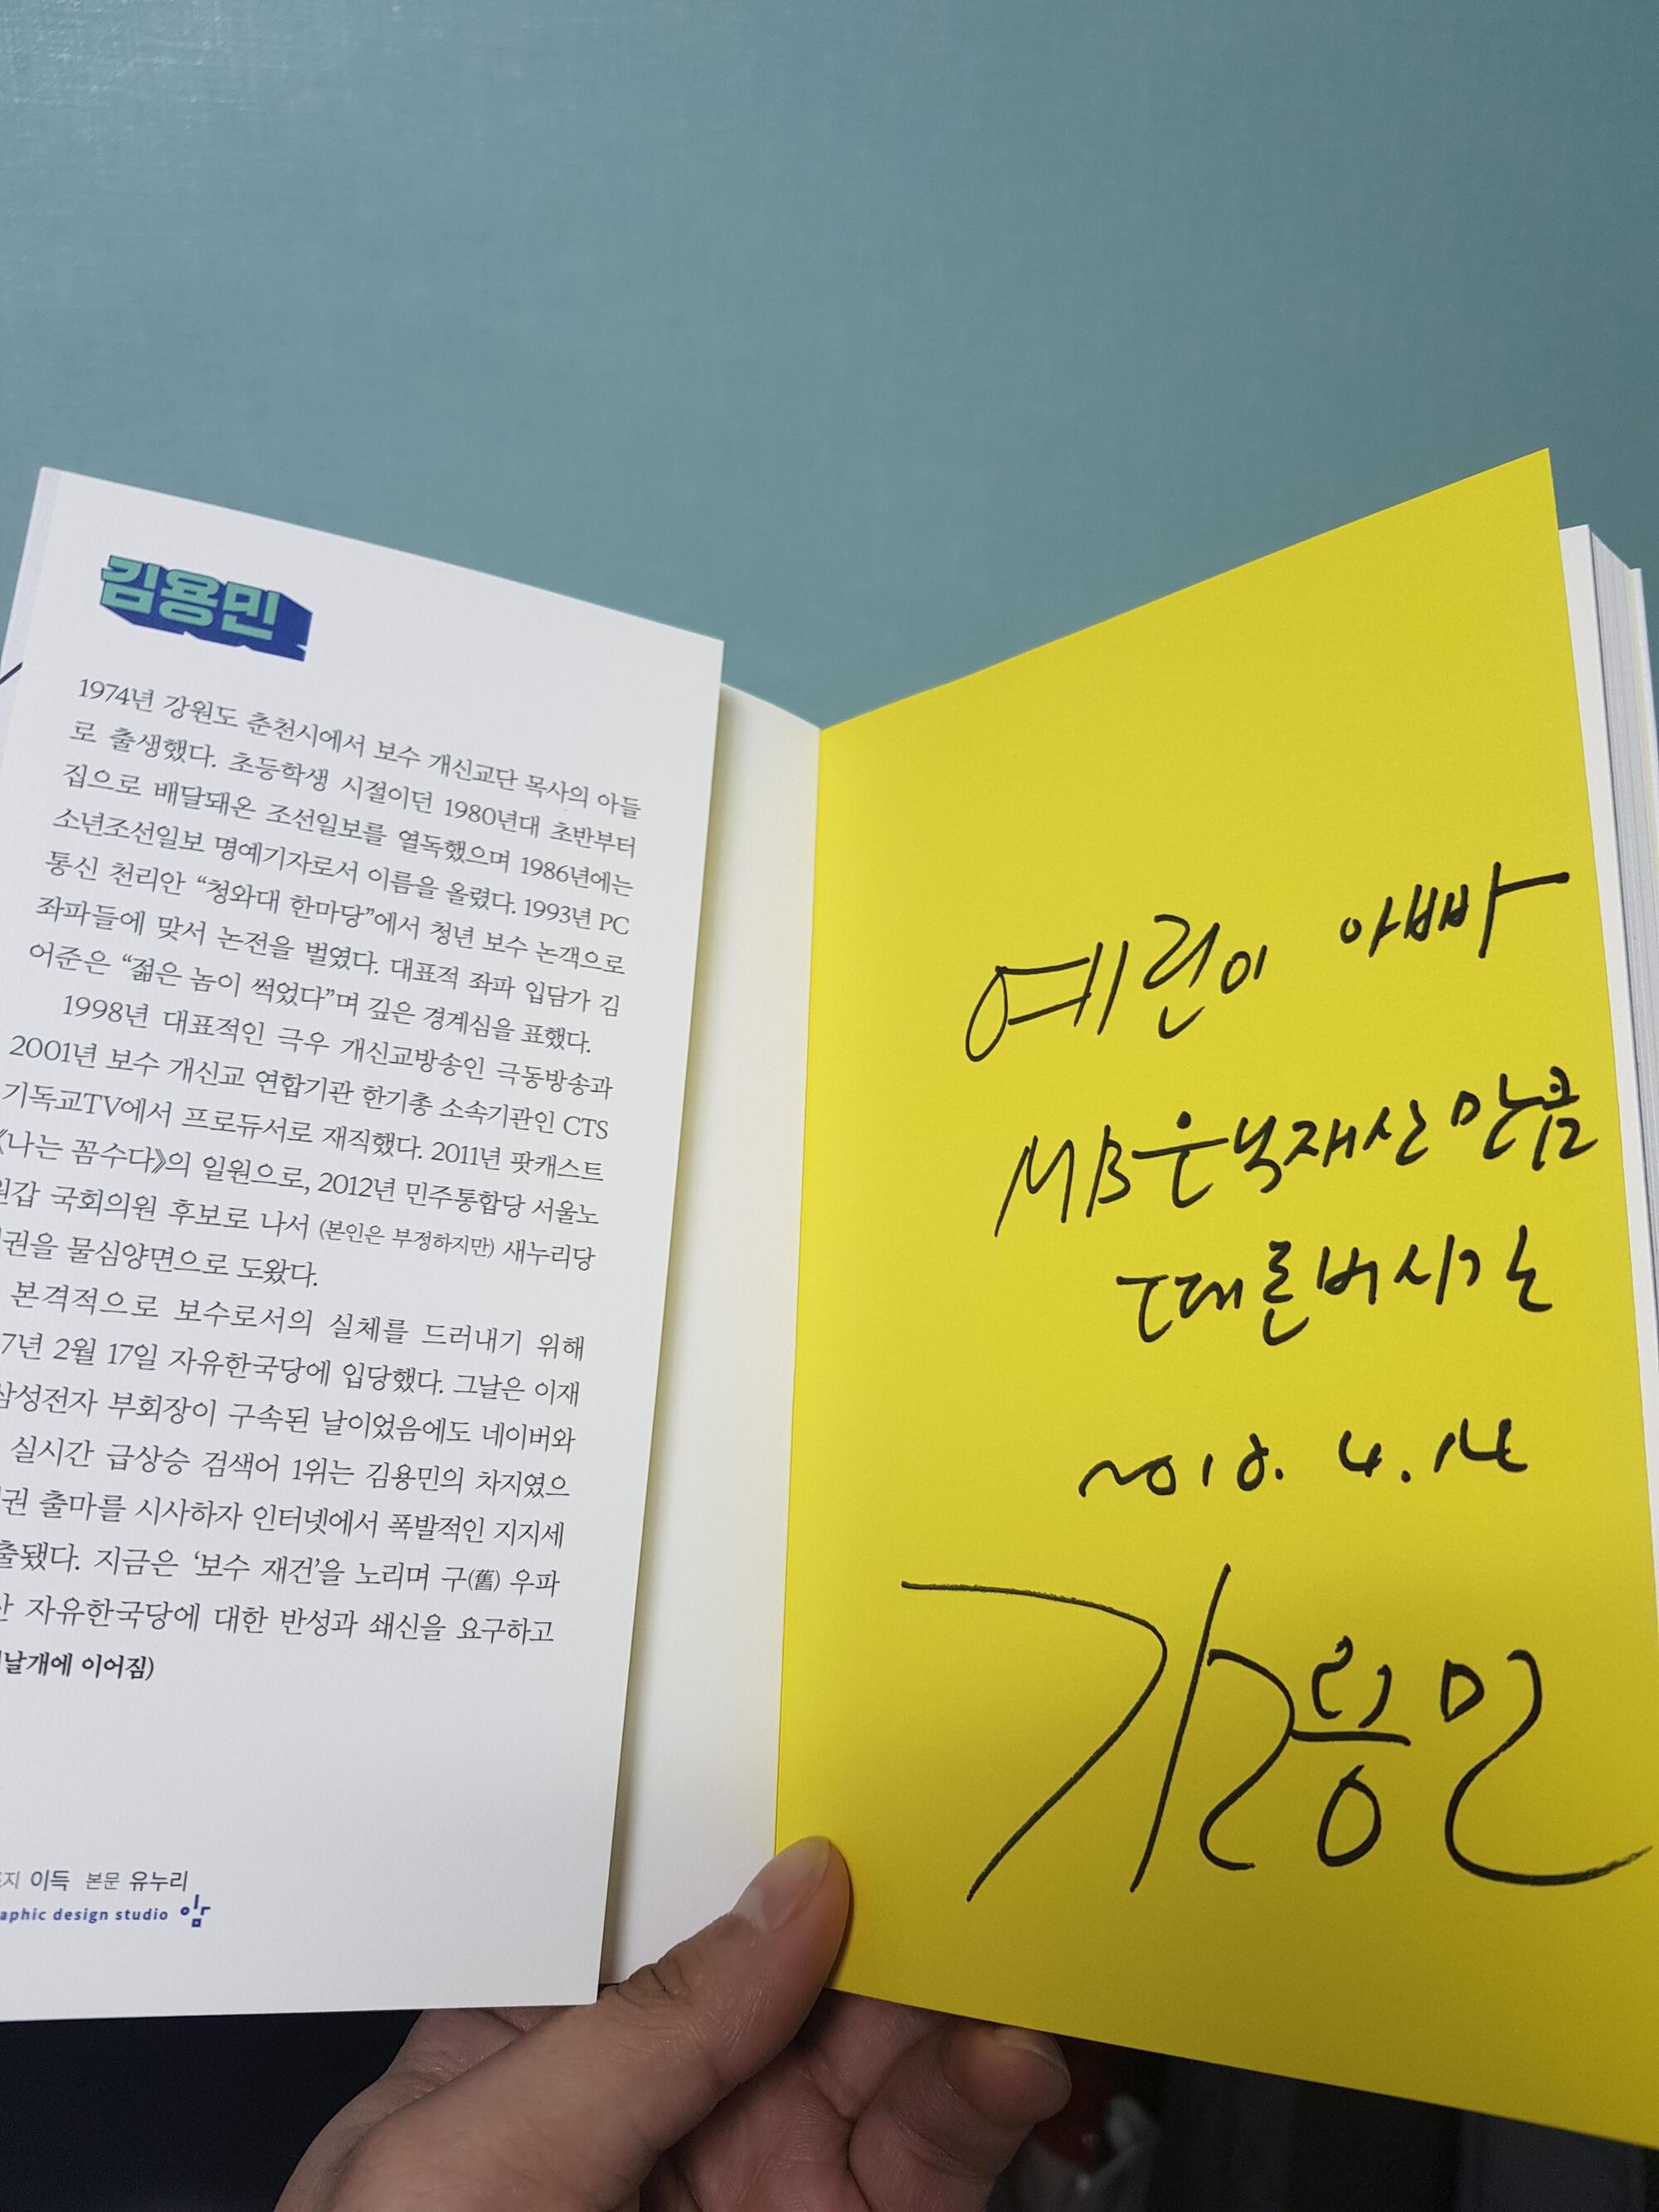 김용민
1974년 강원도 춘천시에서 보수 개신교단 목사의 아들
로 출생했다. 초등학생 시절이던 1980년대 초반부터
집으로 배달돼온 조선일보를 열독했으며 1986년에는
소년조선일보 명예기자로서 이름을 올렸다. 1993년 PC
통신 천리안 “청와대 한마당”에서 청년 보수 논객으로
좌파들에 맞서 논전을 벌였다. 대표적 좌파 입담가 김
어준은 “젊은 놈이 썩었다”며 깊은 경계심을 표했다.
1998년 대표적인 극우 개신교방송인 극동방송과
2001년 보수 개신교 연합기관 한기총 소속기관인 CTS
기독교TV에서 프로듀서로 재직했다. 2011년 팟캐스트
《나는 꼼수다》의 일원으로, 2012년 민주통합당 서울노
원갑 국회의원 후보로 나서 (본인은 부정하지만) 새누리당
권을 물심양면으로 도왔다.
본격적으로 보수로서의 실체를 드러내기 위해
7년 2월 17일 자유한국당에 입당했다. 그날은 이재
삼성전자 부회장이 구속된 날이었음에도 네이버와
실시간 급상승 검색어 1위는 김용민의 차지였으
권 출마를 시사하자 인터넷에서 폭발적인 지지세
출됐다. 지금은 ‘보수 재건’을 노리며 구(舊) 우파
자유한국당에 대한 반성과 쇄신을 요구하고
날개에 이어짐)
지 이득 본문 유누리
aphic design studio
예린이 아빠
MB은닉재산 만큼
떼돈버시길
2018. 4. 14
김용민